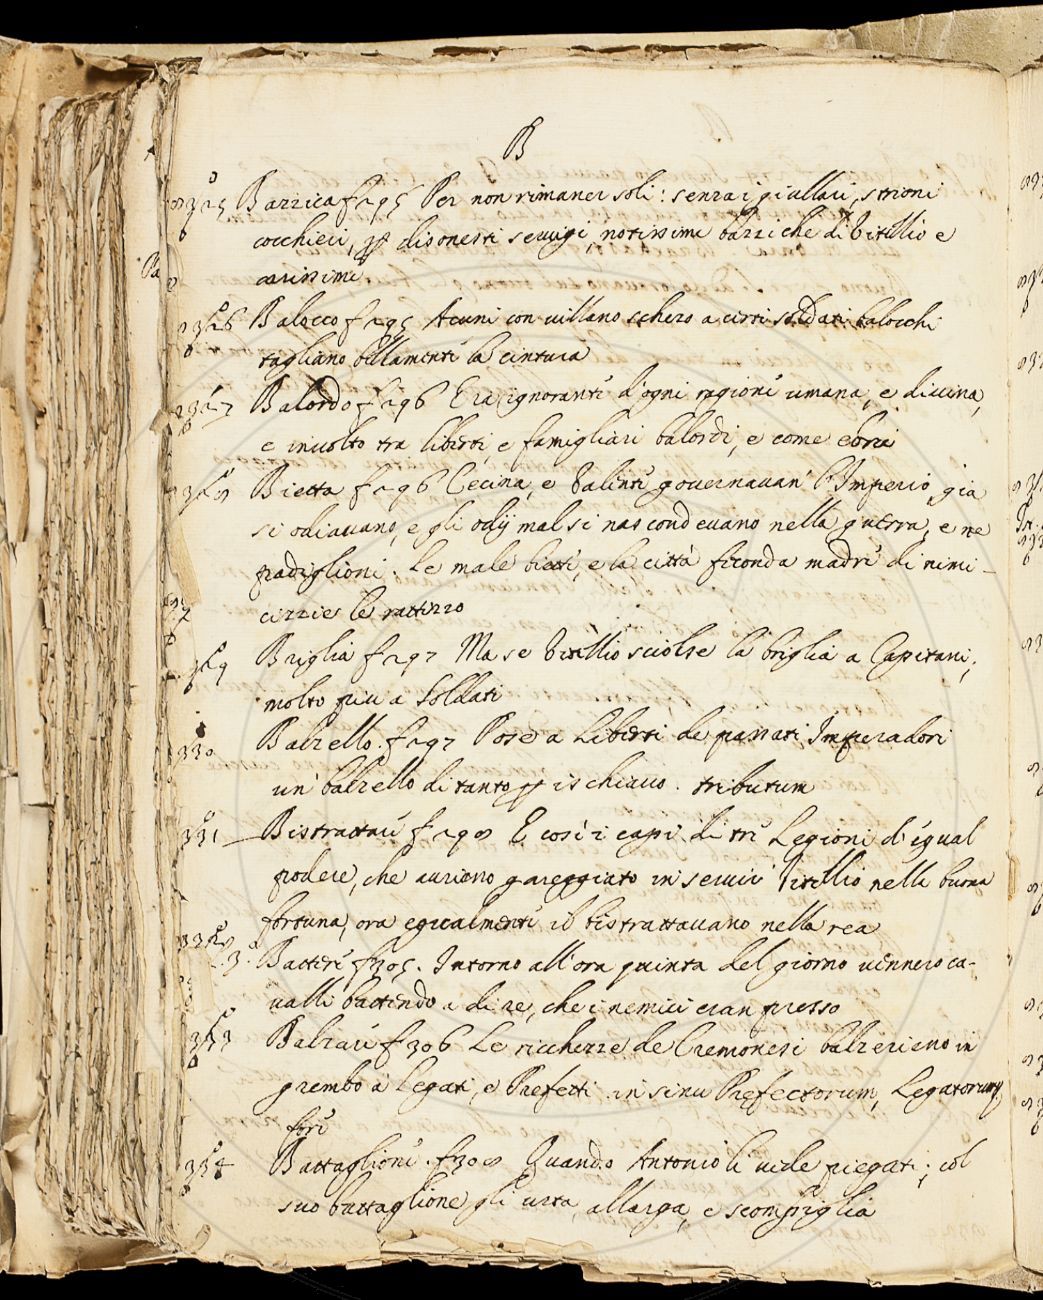 B
325 Bazzica f 295 Per non rimaner soli: senza i giullari, strioni
cocchieri, disonesti seruigi, notissime bazziche di Vitellio e
carissime
326 Balocco f 295 Acuni con uillano scherzo a certi soldati balocchi
tagliano bellamente la cintura
327 Balordo f 296 Era ignorante d'ogni ragione umana, e diuina,
e inuolto tra liberti, e famigliari balordi, e come ebrei
328 Bietta f 296 Cecina, e Valente gouernauan l'Imperio, già
si odiauano, e gli odij mal si nascondeuano nella guerra, e ne
padiglioni. Le male biette, e la città feconda madre di nimi-
cizzie le rattizzò
329 Briglia f 297 Ma se Vitellio sciolse la briglia a Capitani,
molto piu a Soldati
330 Balzello. f 297 Pose a Liberti de passati Imperadori
un' balzello di tanto ischiauo. tributum
331 Bistrattare f 298 E cosi i capi di tre Legioni d'igual
podere, che aurieno gareggiato in seruir Vitellio nella buona
fortuna, ora egualmente il bistrattauano nella rea
332 Battere f 305. Intorno all'ora quinta del giorno uennero ca-
ualli battendo a dire, che i nemici eran presso
333 Balzare f 306 Le ricchezze de Cremonesi balzerieno in
grembo a Legati, e Prefetti. in sinu Prefectorum, Legatorumq
fore
334 Battaglione. f 308 Quando Antonio li uide piegati; col
suo battaglione gli urta, allarga, e scompiglia